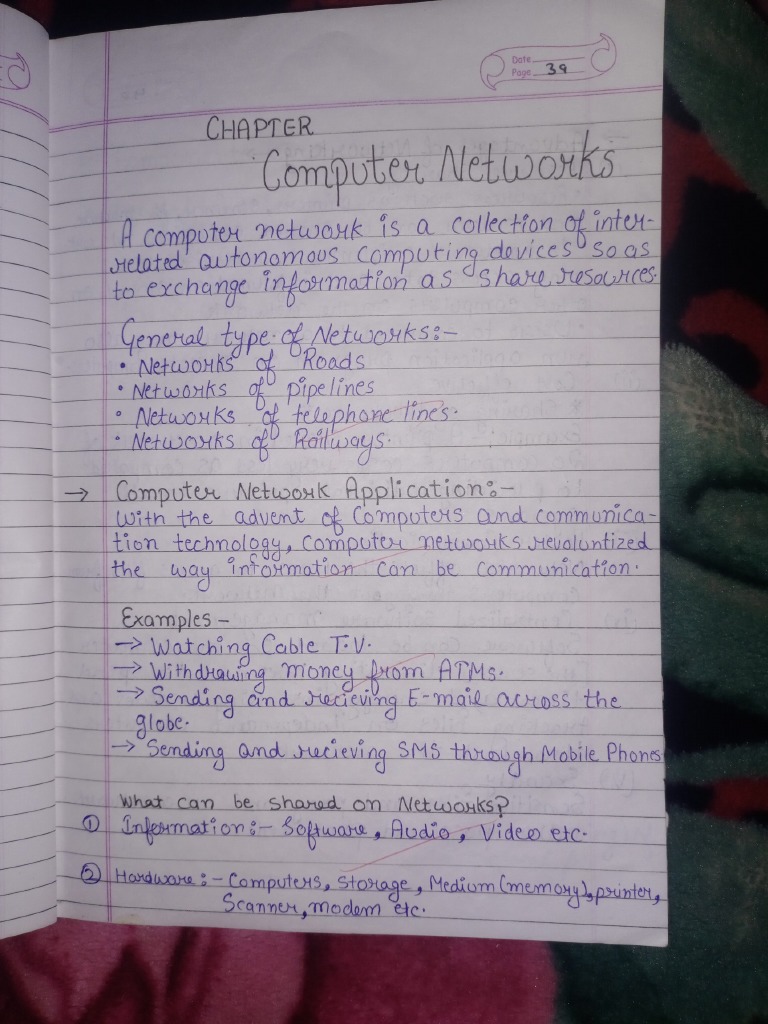 Date
Page 39
CHAPTER
Computer Networks
A computer network is a collection of inter-
related autonomous computing devices so as
to exchange information as share resources.
General type of Networks:-
• Networks of Roads
• Networks of pipelines
• Networks of telephone lines.
• Networks of Railways.
→ Computer Network Application:-
with the advent of Computers and communica-
tion technology, Computer networks revoluntized
the way information can be communication.
Examples -
→ Watching Cable T.V.
→ Withdrawing money from ATMs.
→ Sending and recieving E-mail across the
globe.
→ Sending and recieving SMS through Mobile Phones
What can be shared on Networks?
① Information:- Software, Audio, Video etc.
② Hardware:- Computers, Storage, Medium (memory), printer,
Scanner, modem etc.